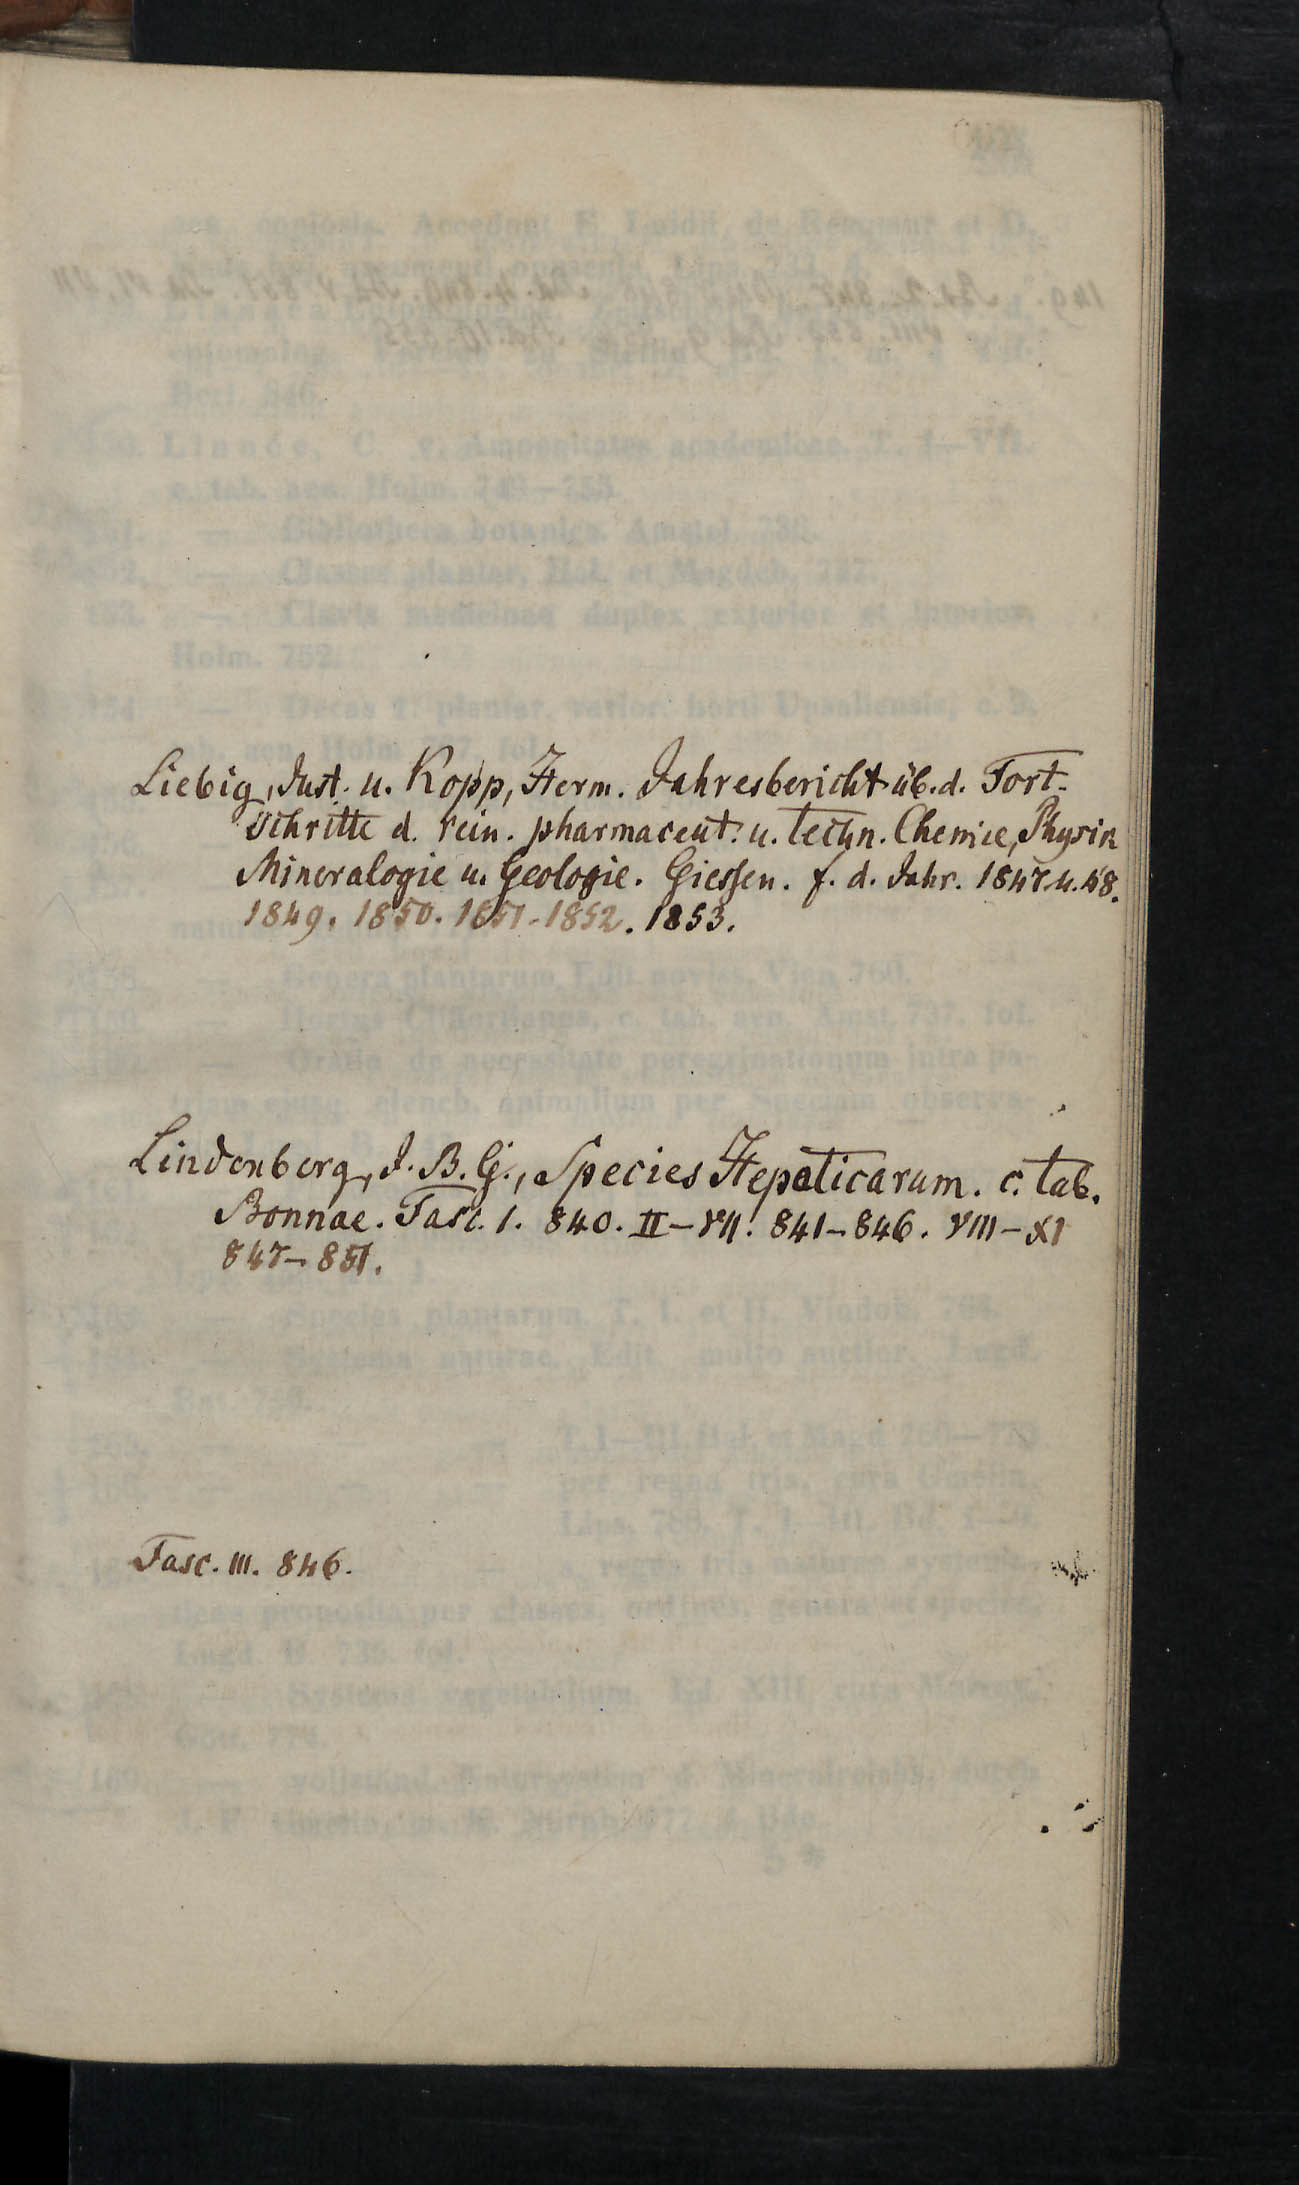 Liebig, Just. u. Kopp, Herm. Jahresbericht üb. d. Fort-
schritte d. rein. pharmaceut. u. techn. Chemie, Physik
Mineralogie u. Geologie. Giessen. f. d. Jahr. 1847 u. 48.
1849. 1850. 1851-1852. 1853.
Lindenberg, J. B. G., Species Hepaticarum. c. tab.
Bonnae. Fasc. 1. 840. II-VII. 841-846. VIII-XI
847-851.
Fasc. III. 846.